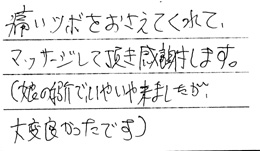 痛いツボをおさえてくれて、
マッサージして頂き感謝します。
(娘の紹介でいやいや来ましたが、
大変良かったです)